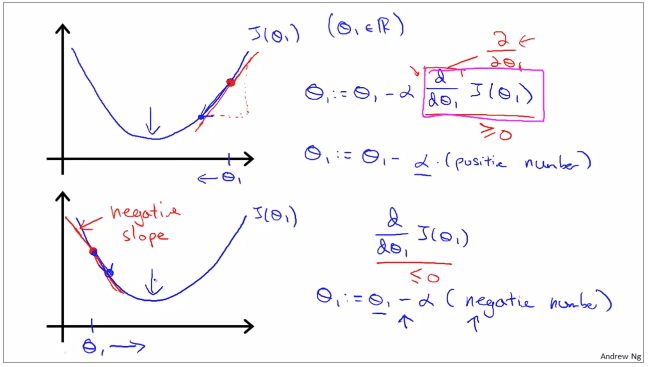 J(θ₁) (θ₁ ∈ ℝ)
∂/∂θ₁
θ₁ := θ₁ - α d/dθ₁ J(θ₁)
≥ 0
θ₁ := θ₁ - α · (positive number)
θ₁
negative
slope
J(θ₁)
d/dθ₁ J(θ₁)
≤ 0
θ₁ := θ₁ - α (negative number)
θ₁
Andrew Ng